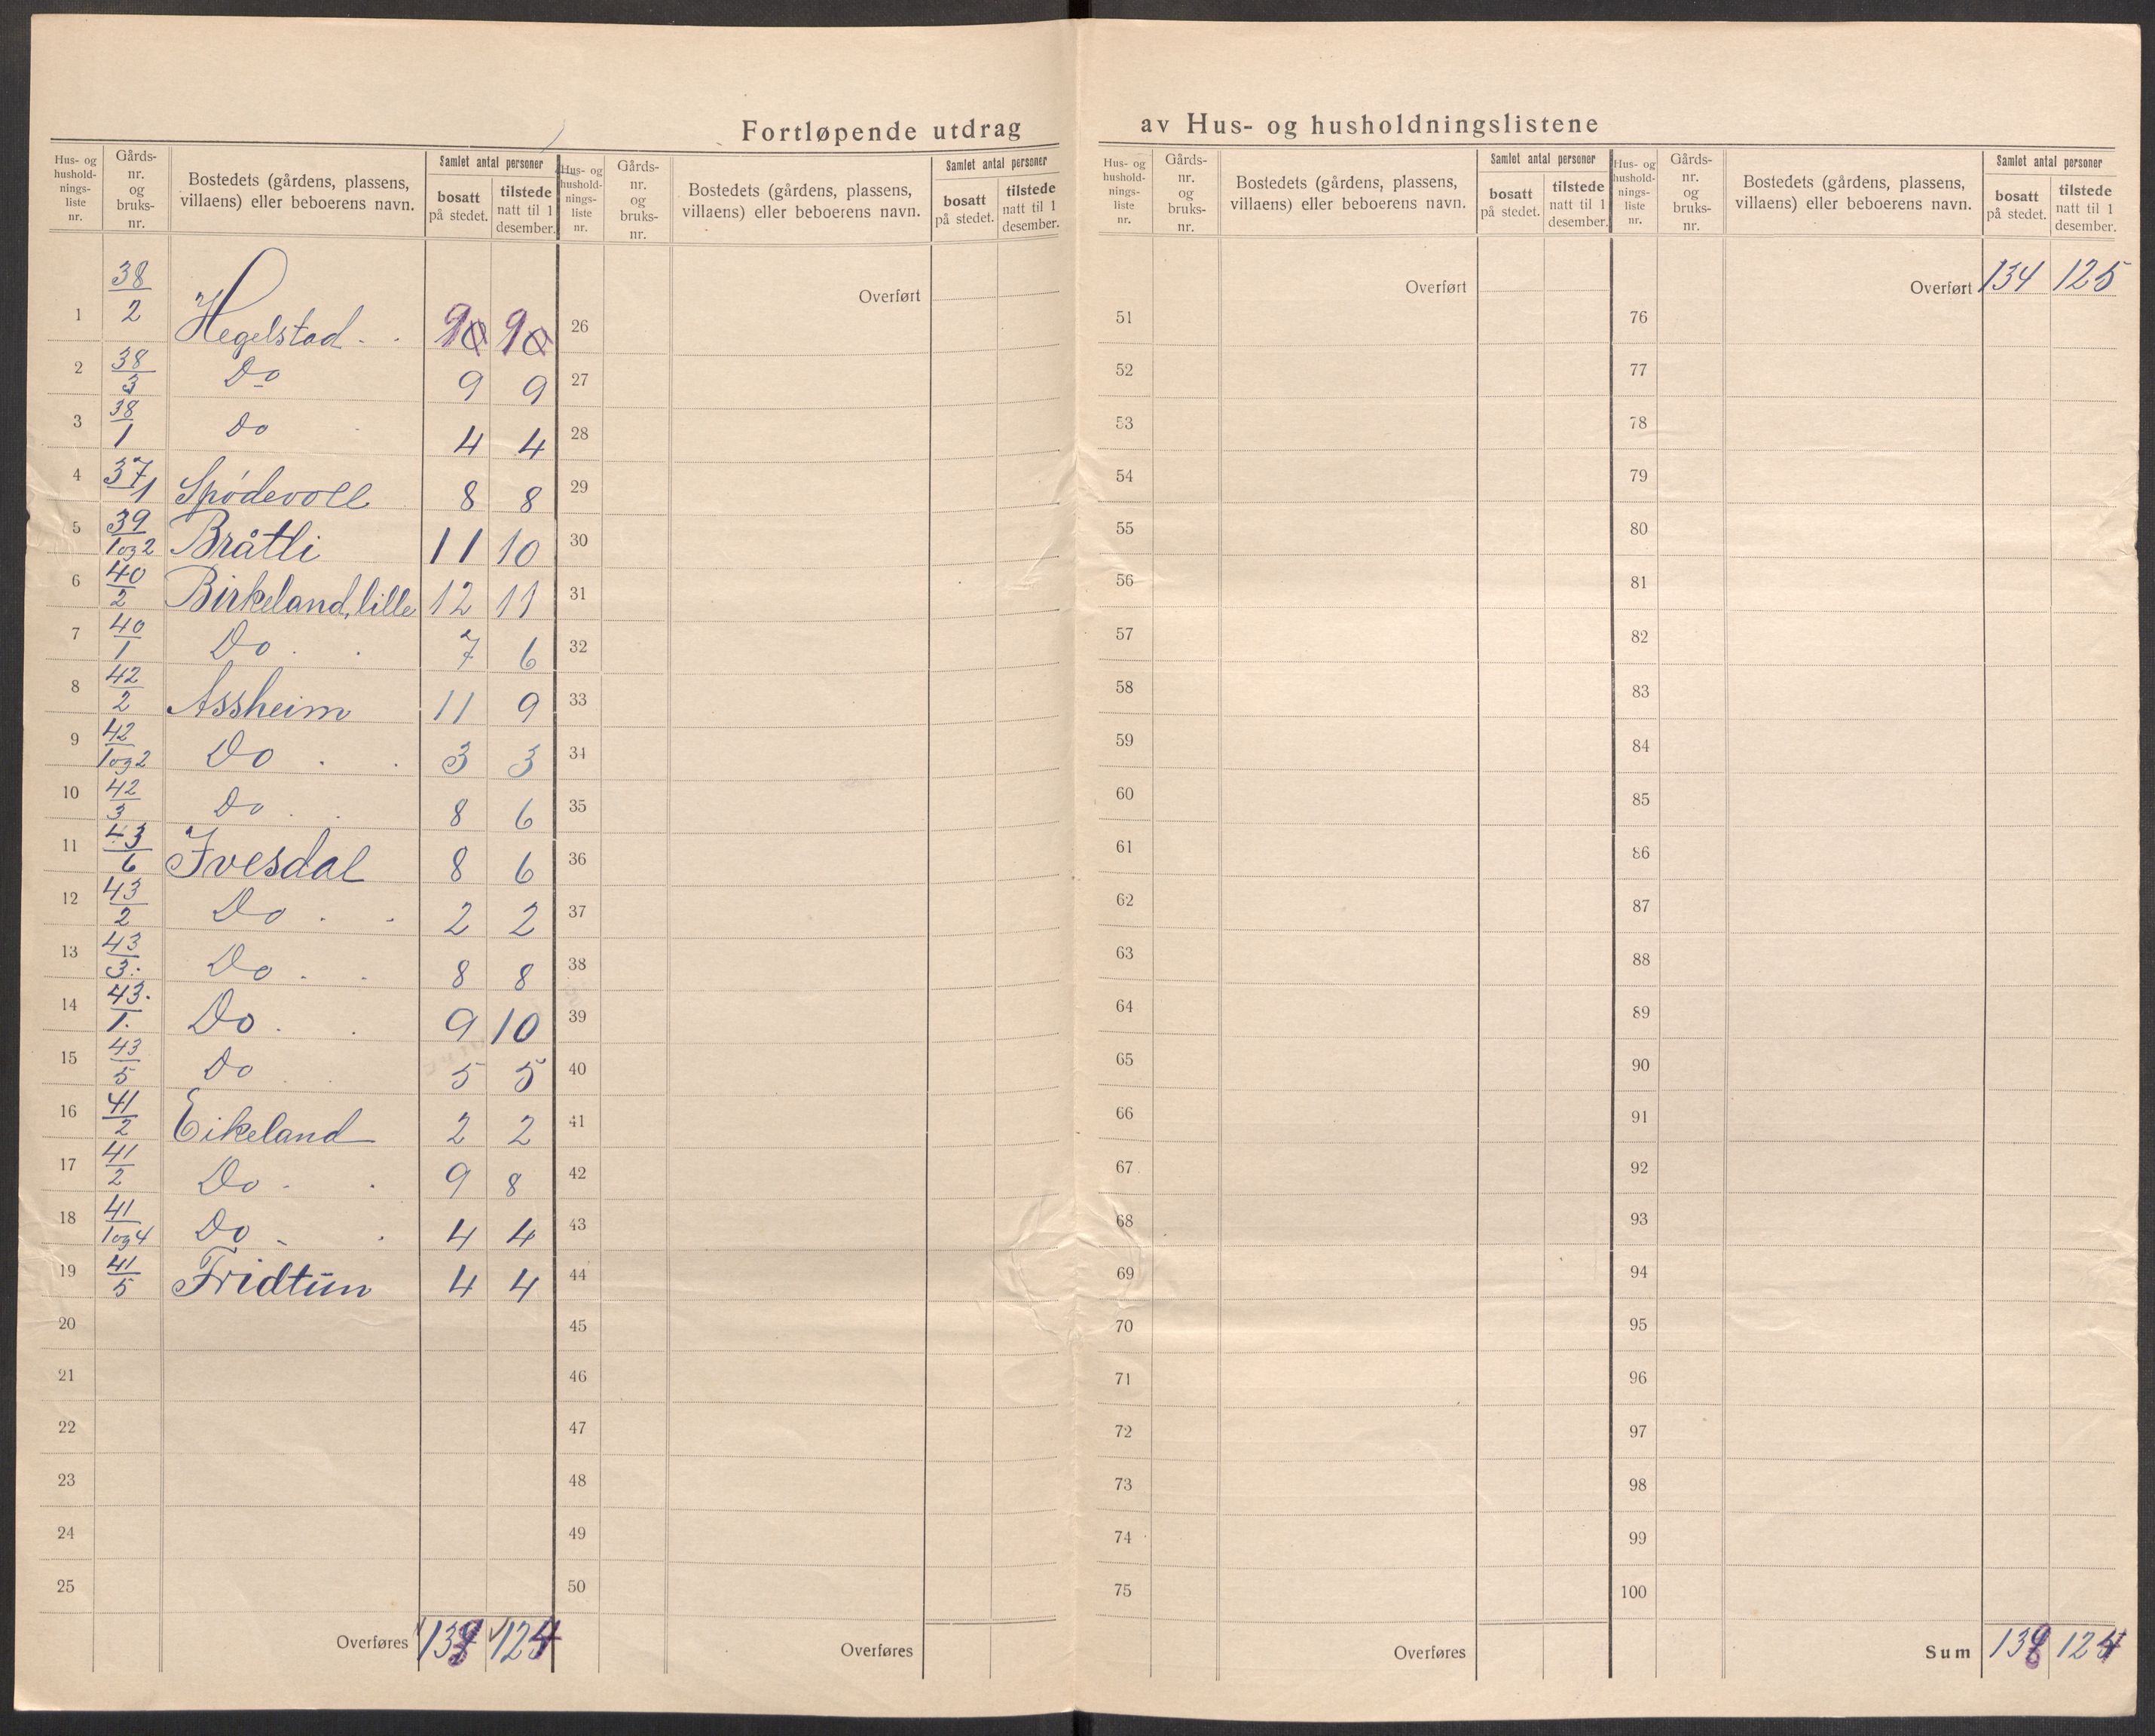 Fortløpende utdrag av Hus- og husholdningslistene
Hus- og hushold-nings-liste nr. | Gårds-nr. og bruks-nr. | Bostedets (gårdens, plassens, villaens) eller beboerens navn. | Samlet antal personer | bosatt på stedet. | tilstede natt til 1 desember.
1 38/2 Hegelstad 9 9
2 38/3 Do 9 9
3 38/1 Do 4 4
4 37/1 Spødevoll 8 8
5 39/1og2 Bråtli 11 10
6 40/2 Birkeland, lille 12 11
7 40/1 Do 7 6
8 42/2 Assheim 11 9
9 42/1og2 Do 3 3
10 42/3 Do 8 6
11 43/6 Ivesdal 8 6
12 43/2 Do 2 2
13 43/3 Do 8 8
14 43/1 Do 9 10
15 43/5 Do 5 5
16 41/2 Eikeland 2 2
17 41/2 Do 9 8
18 41/1og4 Do 4 4
19 41/5 Fridtun 4 4
20
21
22
23
24
25
Overføres 133 124
Hus- og hushold-nings-liste nr. | Gårds-nr. og bruks-nr. | Bostedets (gårdens, plassens, villaens) eller beboerens navn. | Samlet antal personer | bosatt på stedet. | tilstede natt til 1 desember.
Overført
26
27
28
29
30
31
32
33
34
35
36
37
38
39
40
41
42
43
44
45
46
47
48
49
50
Overføres
Hus- og hushold-nings-liste nr. | Gårds-nr. og bruks-nr. | Bostedets (gårdens, plassens, villaens) eller beboerens navn. | Samlet antal personer | bosatt på stedet. | tilstede natt til 1 desember.
Overført
51
52
53
54
55
56
57
58
59
60
61
62
63
64
65
66
67
68
69
70
71
72
73
74
75
Overføres
Hus- og hushold-nings-liste nr. | Gårds-nr. og bruks-nr. | Bostedets (gårdens, plassens, villaens) eller beboerens navn. | Samlet antal personer | bosatt på stedet. | tilstede natt til 1 desember.
Overført 134 125
76
77
78
79
80
81
82
83
84
85
86
87
88
89
90
91
92
93
94
95
96
97
98
99
100
Sum 133 124